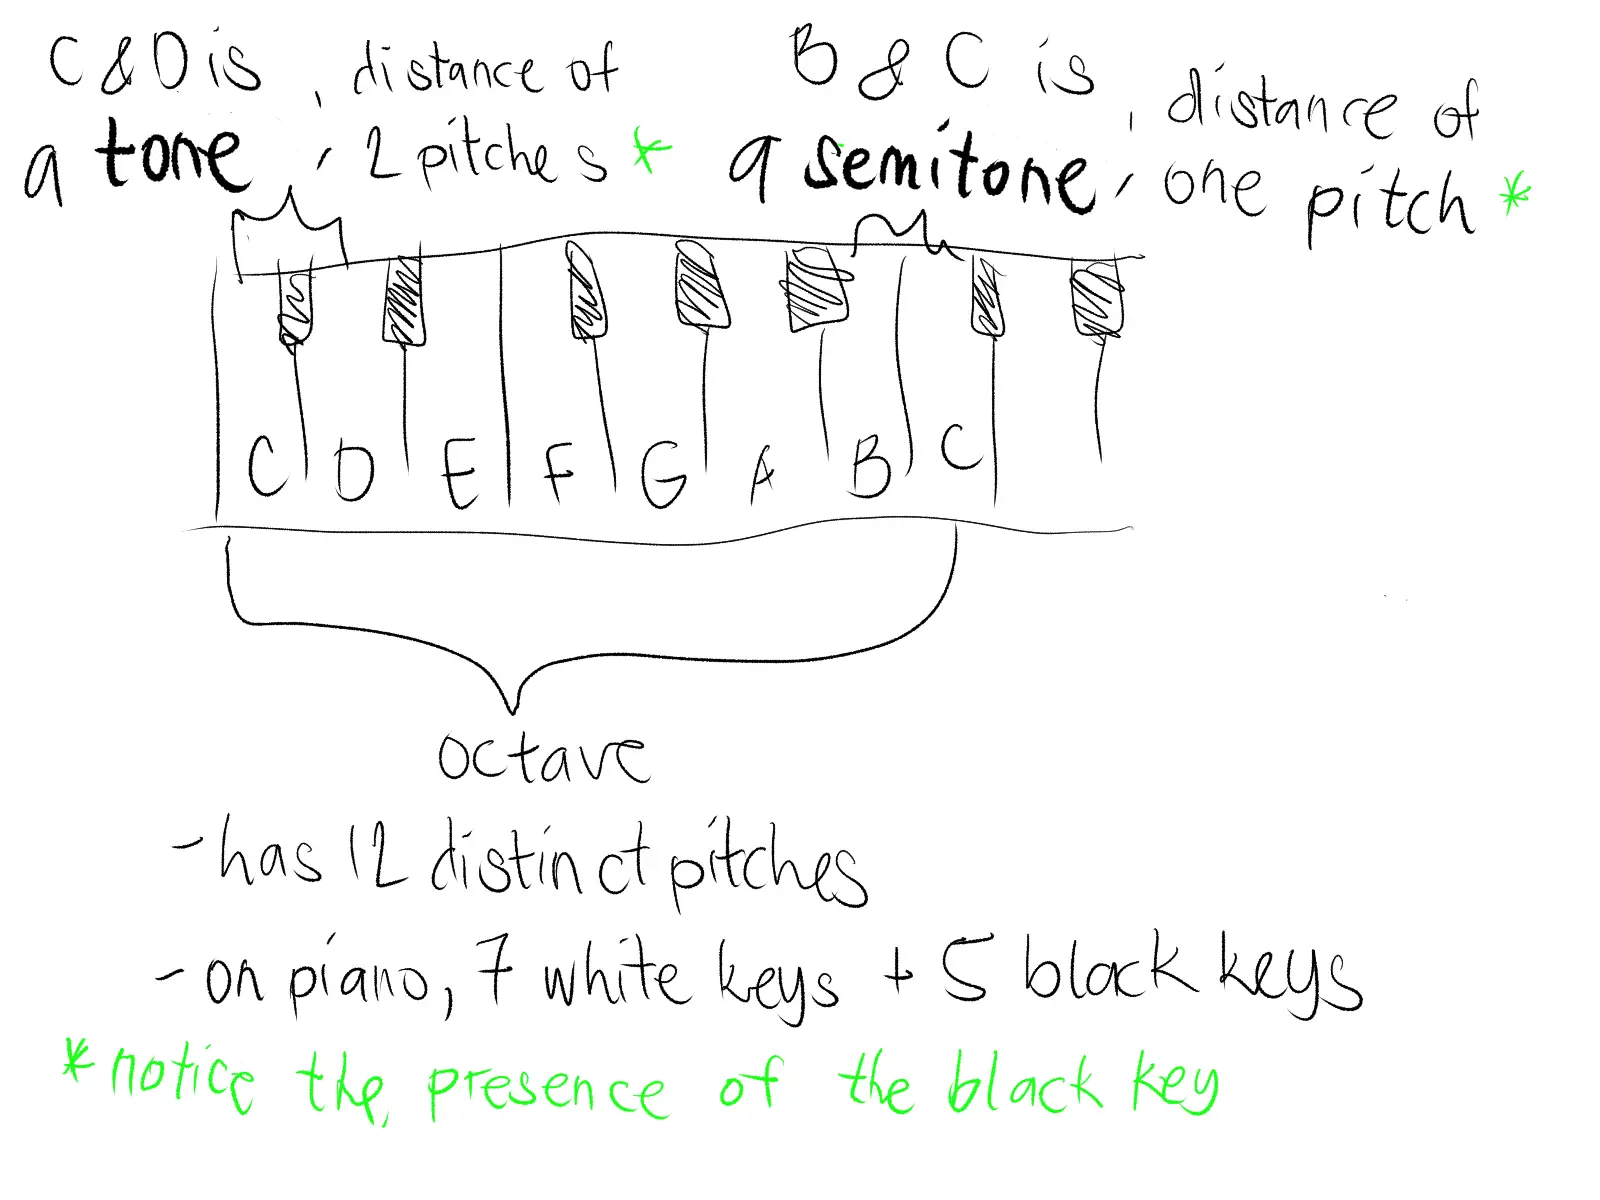 C & D is , distance of
a tone , 2 pitches *
B & C is , distance of
a semitone , one pitch *
C D E F G A B C
octave
- has 12 distinct pitches
- on piano, 7 white keys + 5 black keys
* notice the presence of the black key